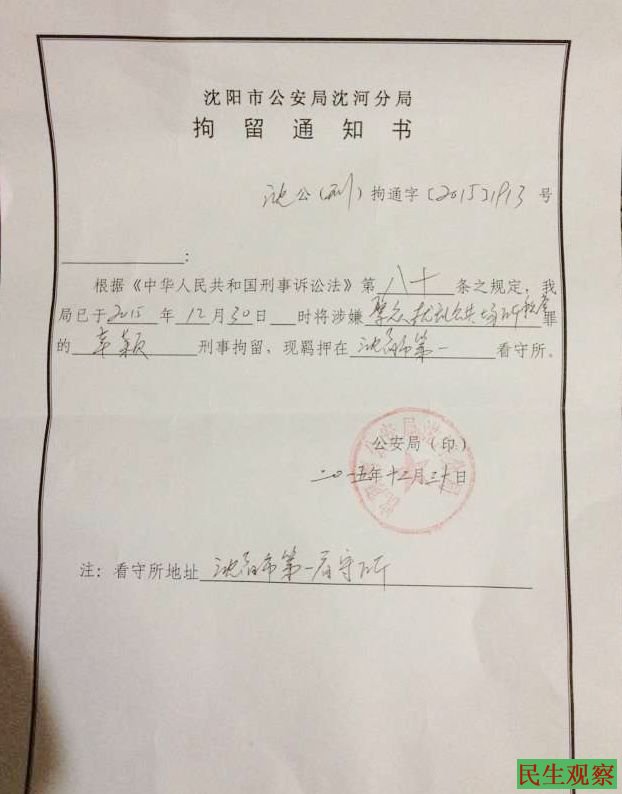 沈阳市公安局沈河分局
拘留通知书
沈公(刑)拘通字〔2015〕1913号
:
根据《中华人民共和国刑事诉讼法》第八十条之规定,我
局已于2015年12月30日 时将涉嫌聚众扰乱公共场所秩序罪
的 刑事拘留,现羁押在沈阳市第一看守所。
公安局(印)
二〇一五年十二月三十日
注:看守所地址沈阳市第一看守所
民生观察